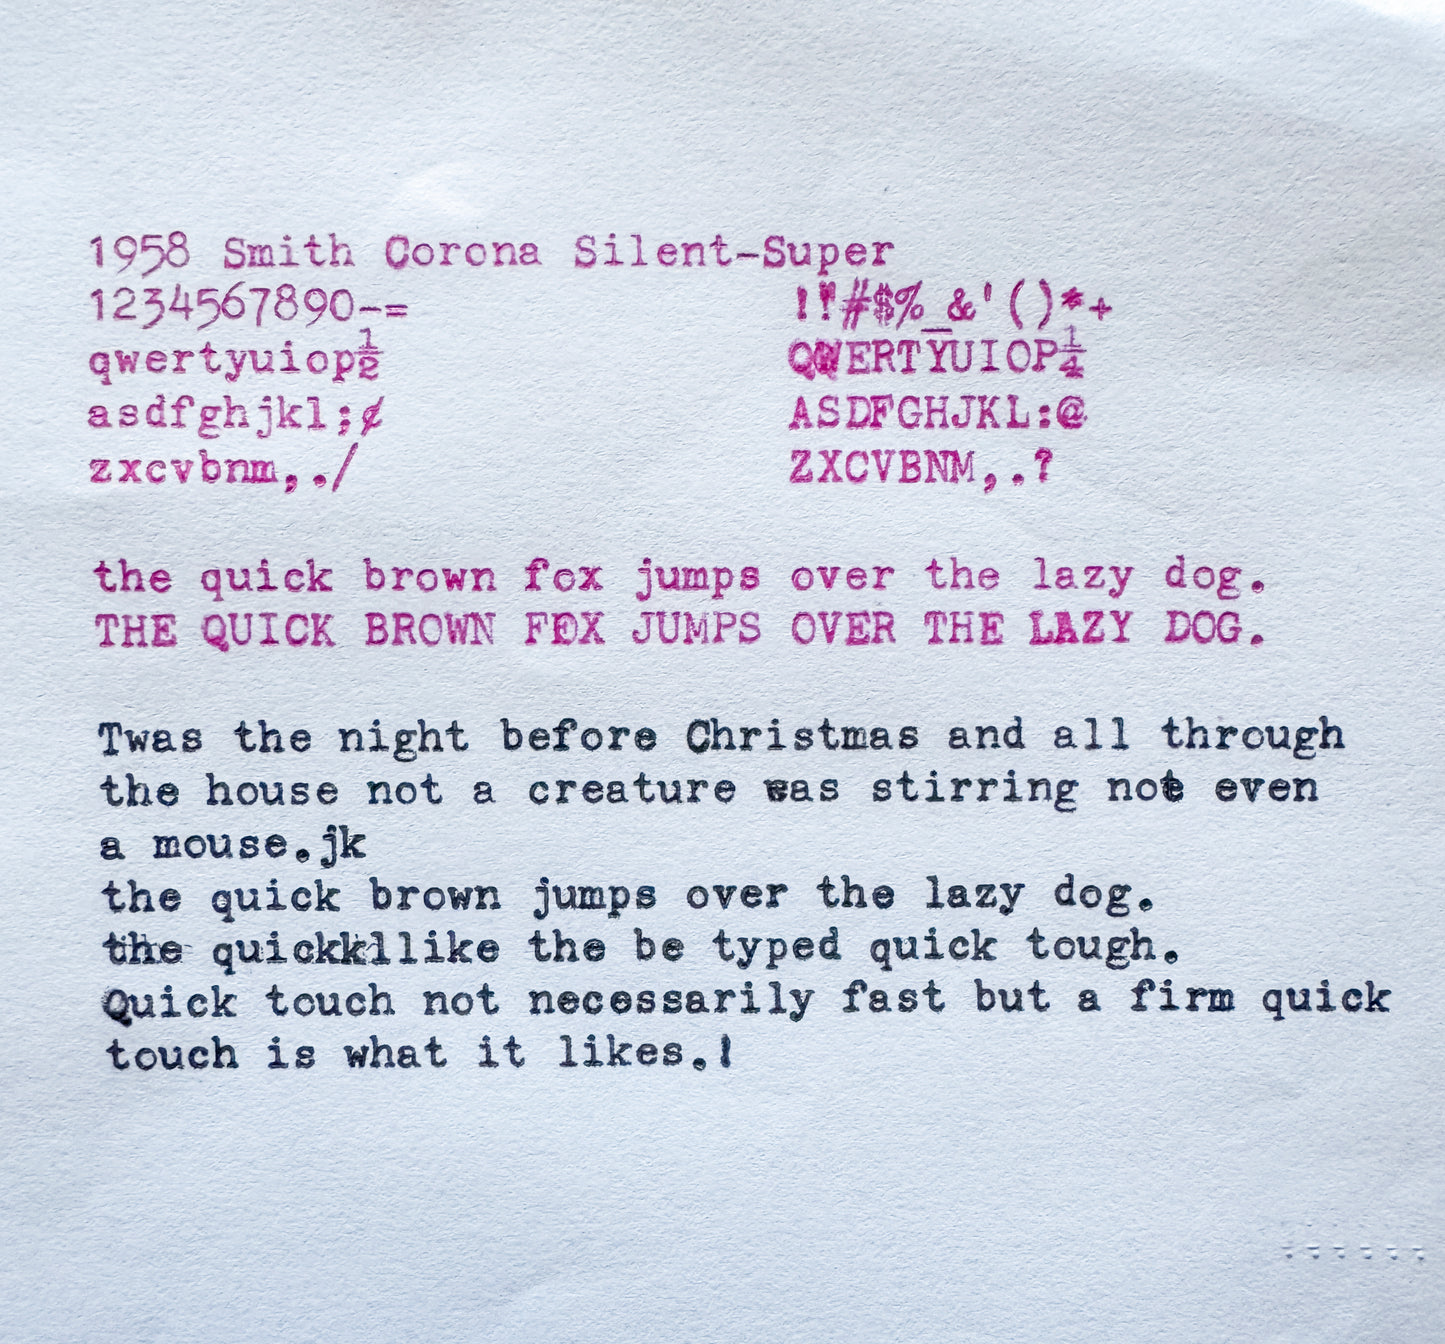 1958 Smith Corona Silent-Super
1234567890-= !"#$%_&'()*+
qwertyuiop½ QWERTYUIOP¼
asdfghjkl;¢ ASDFGHJKL:@
zxcvbnm,./ ZXCVBNM,.?
the quick brown fox jumps over the lazy dog.
THE QUICK BROWN FOX JUMPS OVER THE LAZY DOG.
Twas the night before Christmas and all through
the house not a creature was stirring not even
a mouse.jk
the quick brown jumps over the lazy dog.
the quickkllike the be typed quick tough.
Quick touch not necessarily fast but a firm quick
touch is what it likes.!